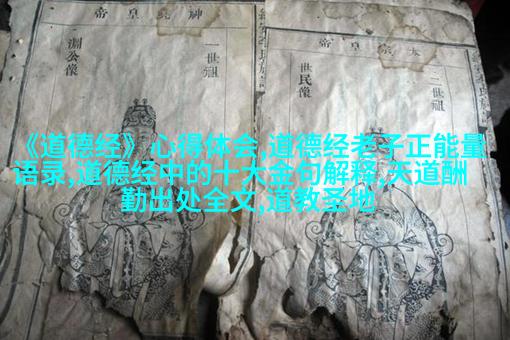 神堯皇帝
一世祖
淵公像
太宗皇帝
二世祖
世民像
《道德经》心得体会,道德经老子正能量
语录,道德经中的十大金句解释,天道酬
勤出处全文,道教圣地